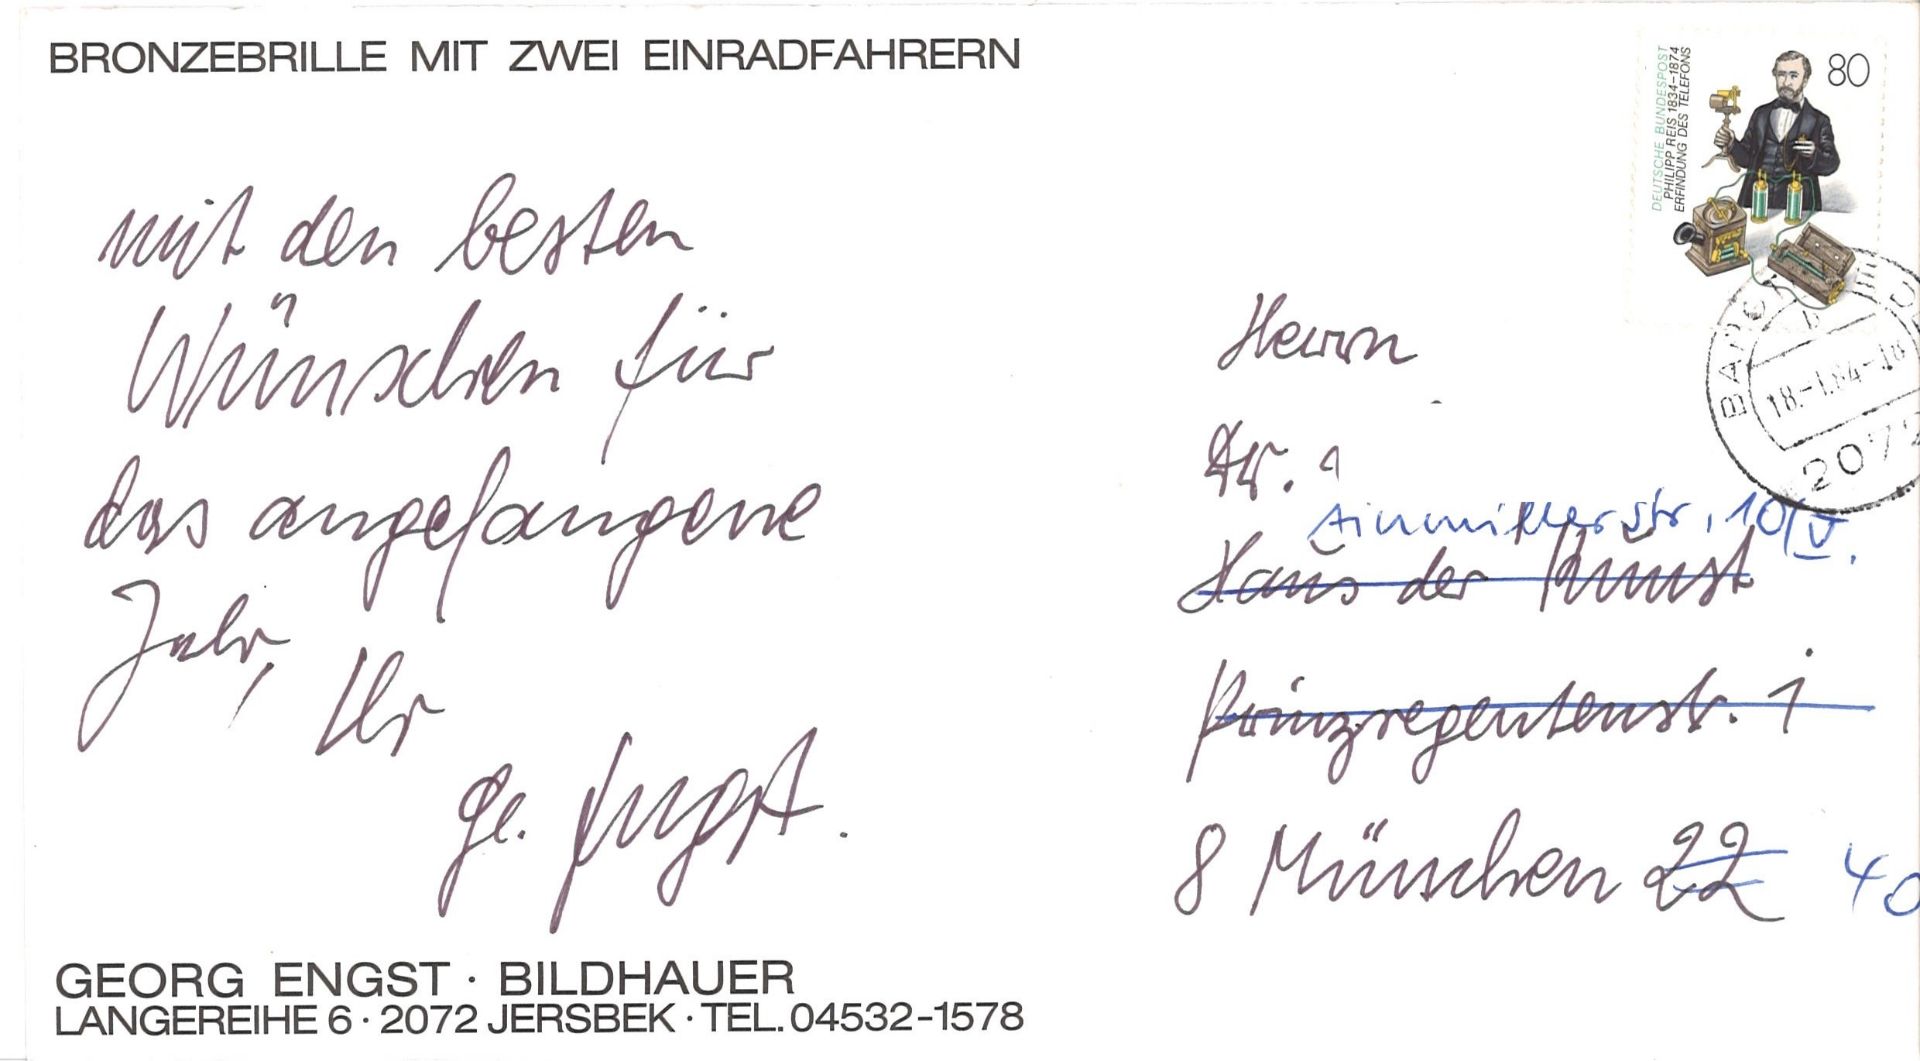 BRONZEBRILLE MIT ZWEI EINRADFAHRERN
mit den besten
Wünschen für
das angefangene
Jahr,
Ihr
Ge. Engst.
GEORG ENGST · BILDHAUER
LANGEREIHE 6 · 2072 JERSBEK · TEL. 04532-1578
DEUTSCHE BUNDESPOST
PHILIPP REIS 1834-1874
ERFINDUNG DES TELEFONS
80
18.-1.84-18
2072
Herrn
Dr.
Ainmillerstr, 10/V.
Haus der Kunst
Prinzregentenstr. 1
8 München 22 40